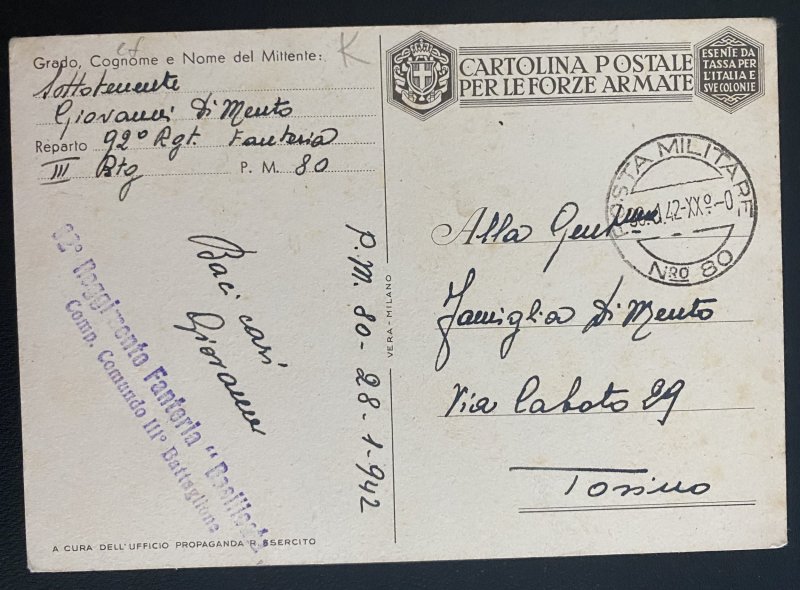 cf
K
Grado, Cognome e Nome del Mittente:
Sottotenente
Giovanni Di Mento
Reparto 92° Rgt. Fanteria
III Btg P. M. 80
92° Reggimento Fanteria "Basilicata"
Comp. Comando III° Battaglione
Baci cari
Giovanni
P.M. 80-28-1-942
A CURA DELL'UFFICIO PROPAGANDA R. ESERCITO
VERA - MILANO
CARTOLINA POSTALE
PER LE FORZE ARMATE
ESENTE DA
TASSA PER
L'ITALIA E
SVE COLONIE
POSTA MILITARE
.1.42-XXº-0
NRO 80
Alla
Famiglia Di Mento
Via Caboto 29
Torino